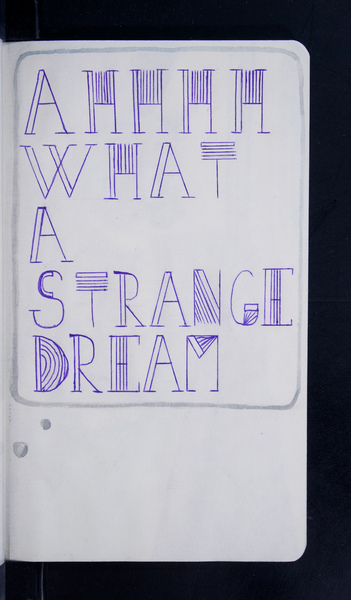 AHHHH
WHAT
A
STRANGE
DREAM